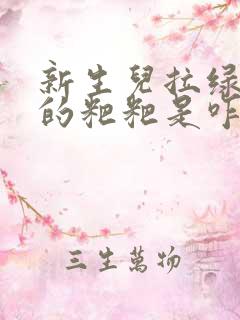 新生兒拉绿
的粑粑是咋
三生萬物